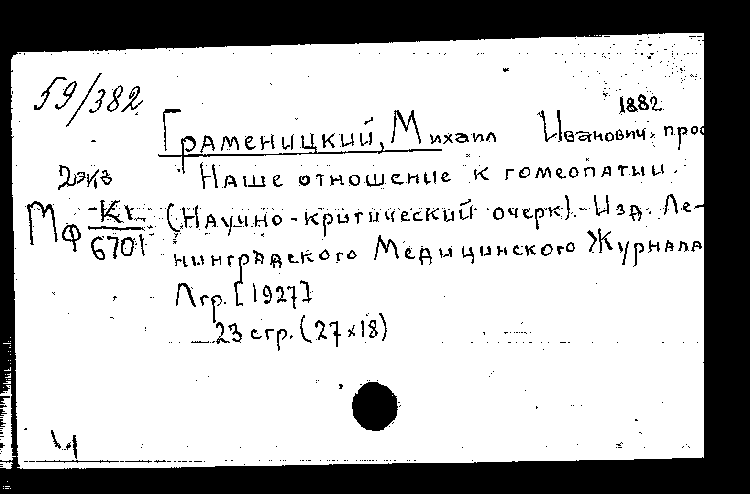 59/382
1882
Граменицкий, Михаил Иванович, про
2 экз
Наше отношение к гомеопатии.
Мф К1 / 6701
(Научно-критический очерк).-Изд. Ле-
нинградского Медицинского Журнала
Лгр. [1927]
23 стр. (27×18)
Ч